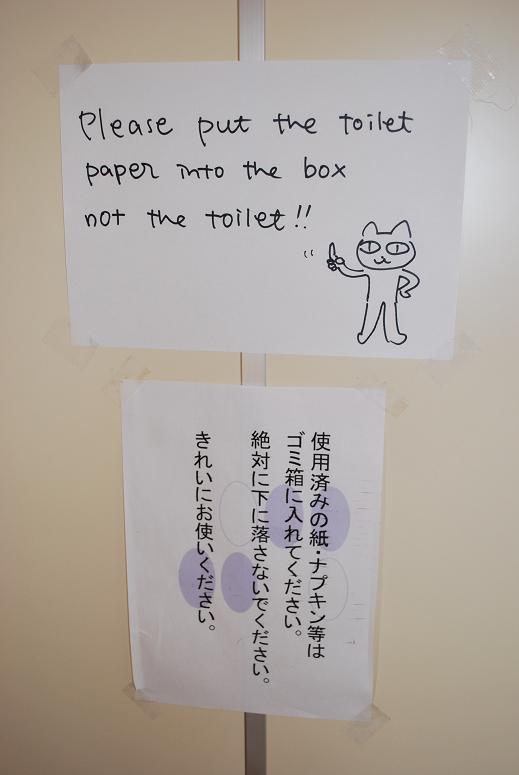 Please put the toilet
paper into the box
not the toilet!!
使用済みの紙・ナプキン等は
ゴミ箱に入れてください。
絶対に下に落さないでください。
きれいにお使いください。